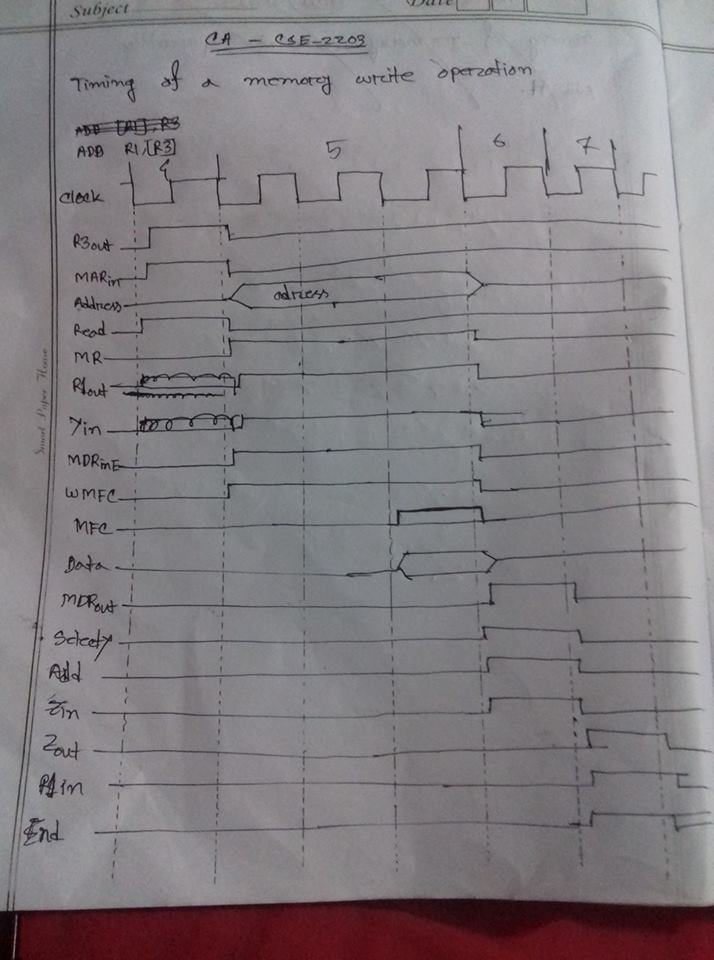 Subject
Date
CA - CSE-2203
Timing of a memory write operation
ADD [R1], R3
ADD R1,[R3]
4 5 6 7
Clock
R3out
MARin
Address
adress
Read
MR
R1out
Yin
MDRinE
WMFC
MFC
Data
MDRout
SelectY
Add
Zin
Zout
R1in
End
Smart Paper House